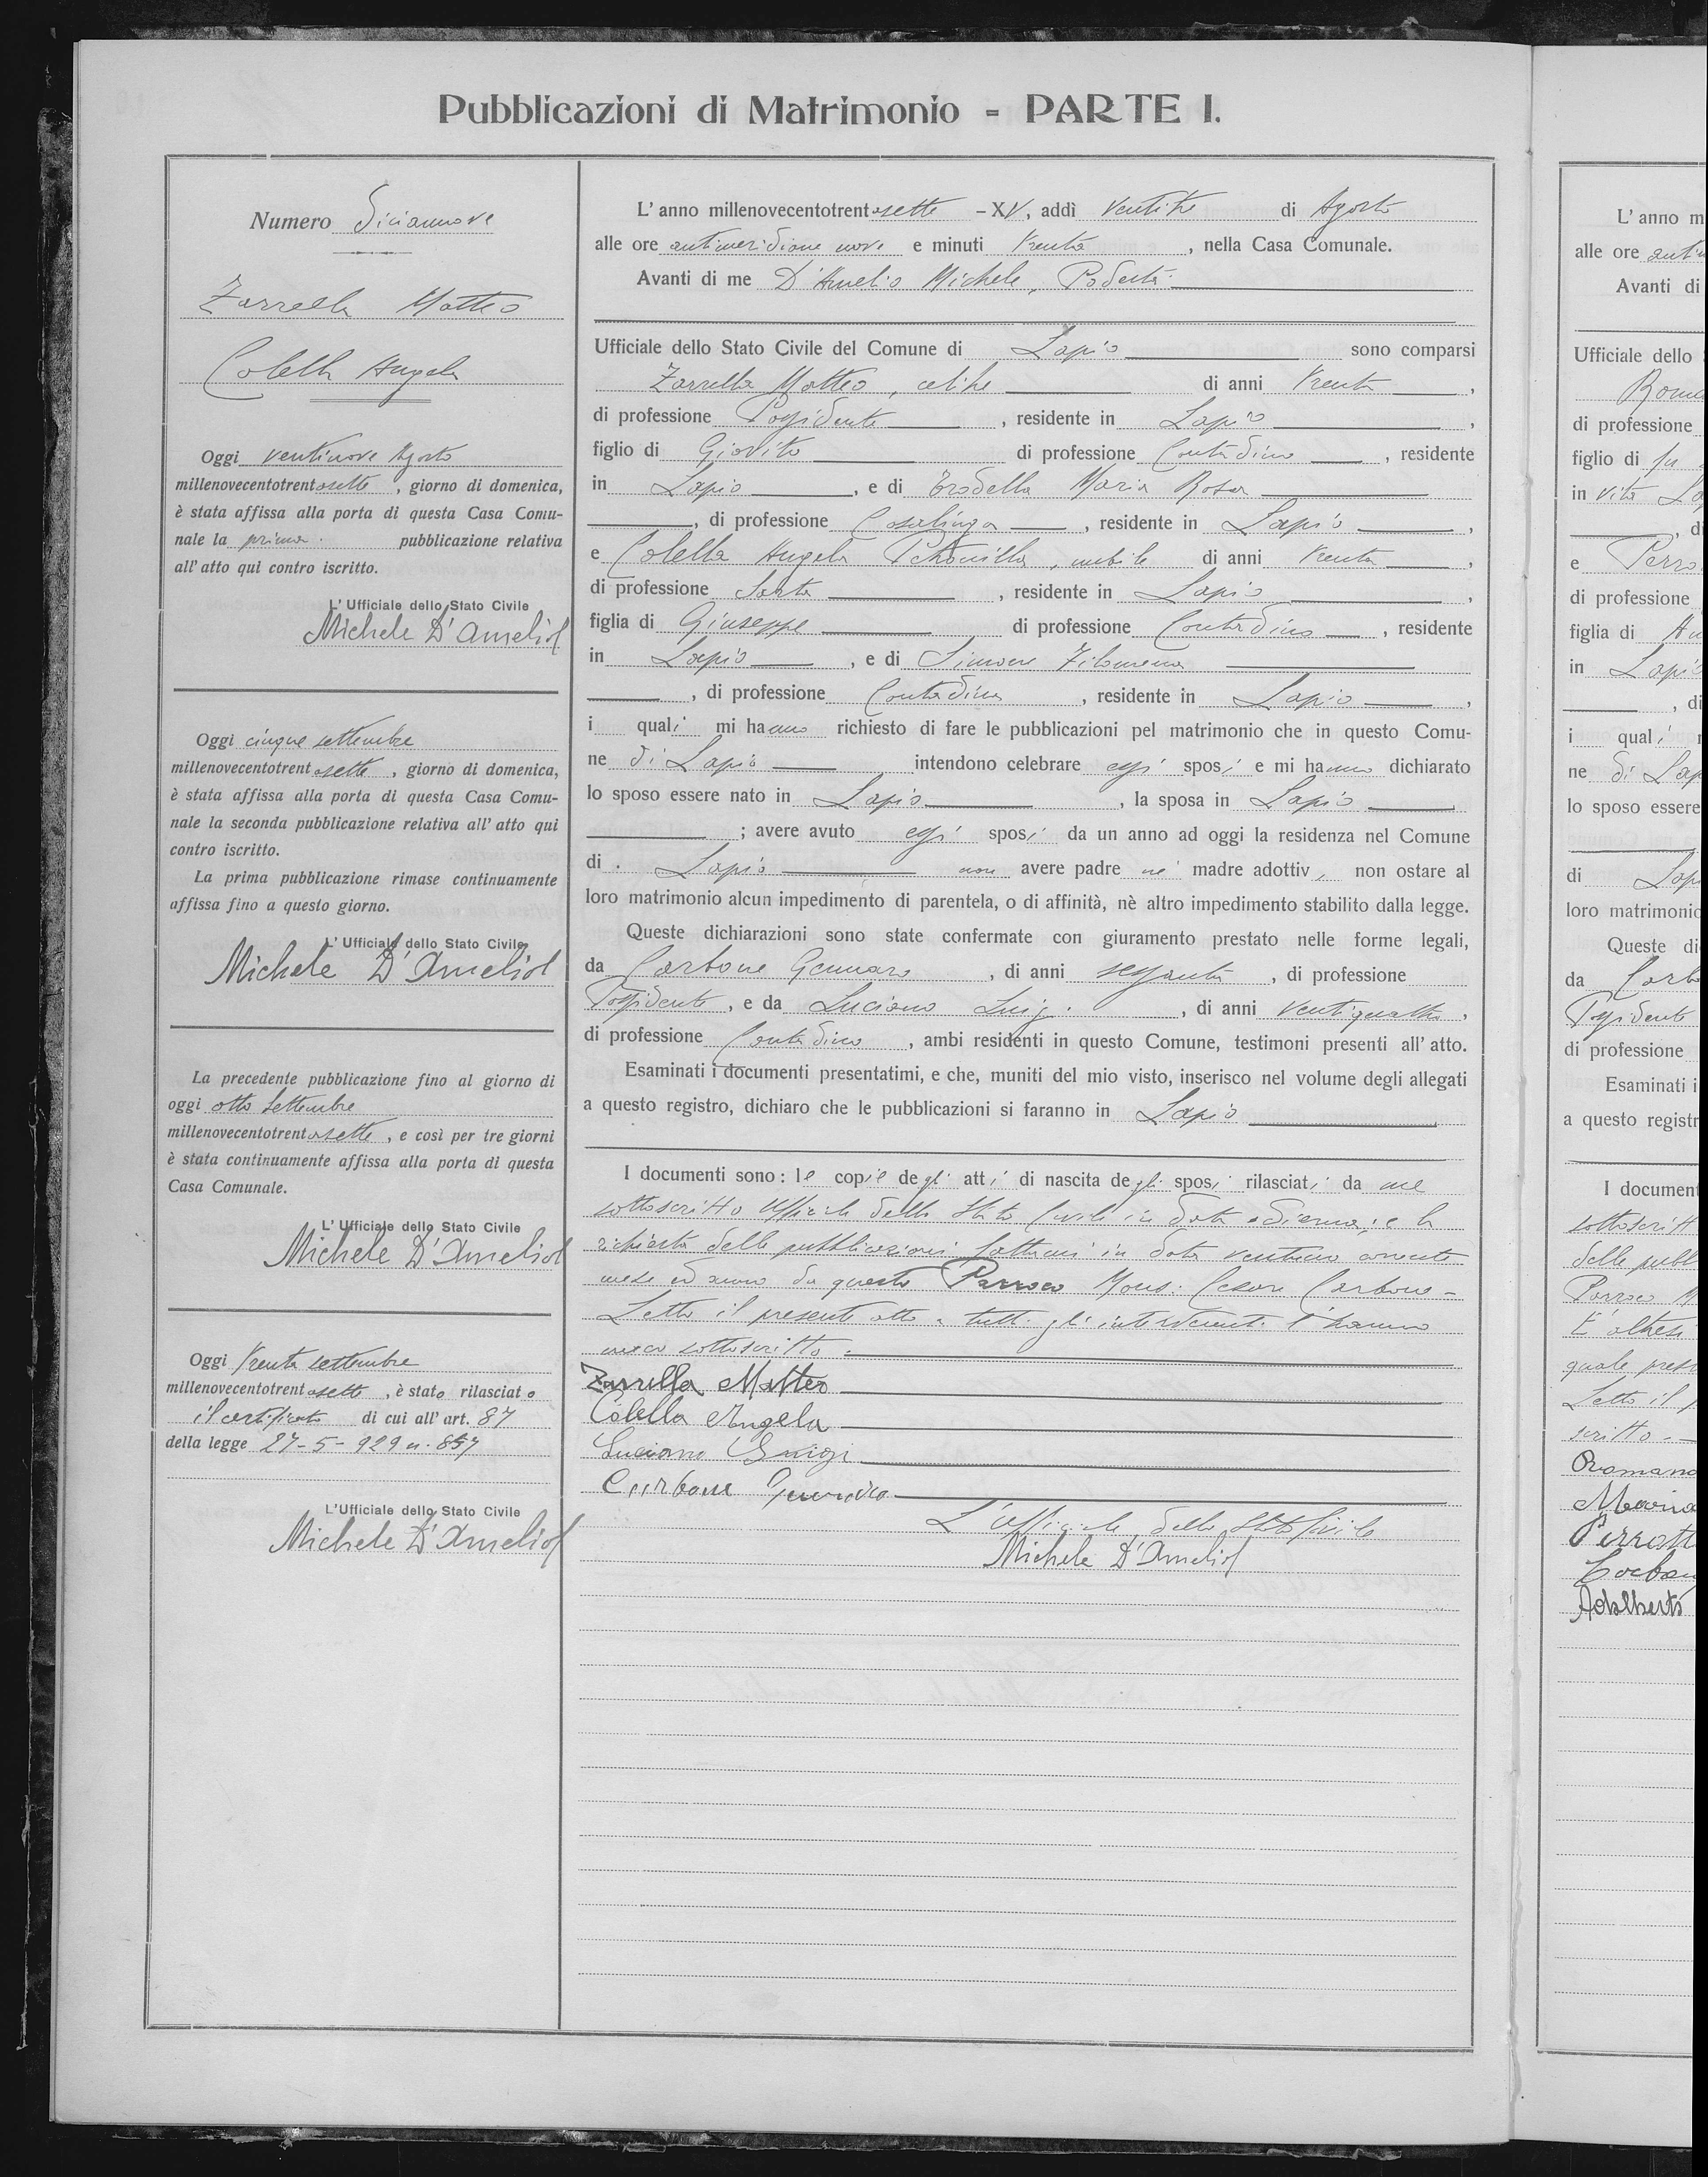 Pubblicazioni di Matrimonio - PARTE I.
Numero Diciannove
Zarrella Matteo
Colella Angela
Oggi ventinove Agosto
millenovecentotrentasette, giorno di domenica,
è stata affissa alla porta di questa Casa Comu-
nale la prima pubblicazione relativa
all'atto quì contro iscritto.
L'Ufficiale dello Stato Civile
Michele D'Amelio
Oggi cinque settembre
millenovecentotrentasette, giorno di domenica,
è stata affissa alla porta di questa Casa Comu-
nale la seconda pubblicazione relativa all'atto qui
contro iscritto.
La prima pubblicazione rimase continuamente
affissa fino a questo giorno.
L'Ufficiale dello Stato Civile
Michele D'Amelio
La precedente pubblicazione fino al giorno di
oggi otto settembre
millenovecentotrentasette, e così per tre giorni
è stata continuamente affissa alla porta di questa
Casa Comunale.
L'Ufficiale dello Stato Civile
Michele D'Amelio
Oggi trenta settembre
millenovecentotrentasette, è stato rilasciato
il certificato di cui all'art. 87
della legge 27-5-929 n. 847
L'Ufficiale dello Stato Civile
Michele D'Amelio
L'anno millenovecentotrentasette - XV, addì ventitre di Agosto
alle ore antimeridiane nove e minuti trenta, nella Casa Comunale.
Avanti di me D'Amelio Michele, Podestà
Ufficiale dello Stato Civile del Comune di Lapio sono comparsi
Zarrella Matteo, celibe di anni trenta,
di professione Possidente, residente in Lapio,
figlio di Giovito di professione Contadino, residente
in Lapio, e di Maria Rosa
, di professione Casalinga, residente in Lapio,
e Colella Angela Petronilla, nubile di anni trenta,
di professione Sarta, residente in Lapio,
figlia di Giuseppe di professione Contadino, residente
in Lapio, e di Simone Filomena
, di professione Contadina, residente in Lapio,
i quali mi hanno richiesto di fare le pubblicazioni pel matrimonio che in questo Comu-
ne di Lapio intendono celebrare essi sposi e mi hanno dichiarato
lo sposo essere nato in Lapio, la sposa in Lapio
; avere avuto essi sposi da un anno ad oggi la residenza nel Comune
di Lapio non avere padre nè madre adottiv, non ostare al
loro matrimonio alcun impedimento di parentela, o di affinità, nè altro impedimento stabilito dalla legge.
Queste dichiarazioni sono state confermate con giuramento prestato nelle forme legali,
da Carbone Gennaro, di anni sessanta, di professione
Possidente, e da Luciano Luigi, di anni ventiquattro,
di professione Contadino, ambi residenti in questo Comune, testimoni presenti all'atto.
Esaminati i documenti presentatimi, e che, muniti del mio visto, inserisco nel volume degli allegati
a questo registro, dichiaro che le pubblicazioni si faranno in Lapio
I documenti sono: le copie degli atti di nascita degli sposi rilasciati da me
sottoscritto Ufficiale dello Stato Civile in data odierna; e la
richiesta delle pubblicazioni fattami in data ventuno corrente
mese ed anno da questo Parroco Mons. Cesare Carbone -
Letto il presente atto a tutti gli intervenuti l'hanno
meco sottoscritto.
Zarrella Matteo
Colella Angela
Luciano Luigi
Carbone Gennaro
L'Ufficiale dello Stato Civile
Michele D'Amelio
L'anno m
alle ore
Avanti di
Ufficiale dello
di professione
figlio di fu
in vita
e
di professione
figlia di
in Lapio
i quali
ne di Lap
lo sposo essere
di Lap
loro matrimonio
Queste di
da Carb
Possidente
di professione
Esaminati i
a questo registr
I document
sottoscritt
delle pubbl
Parroco M
E' altresì
quale
Letto il
scritto
Romano
Maria
Perrott
Adalberto